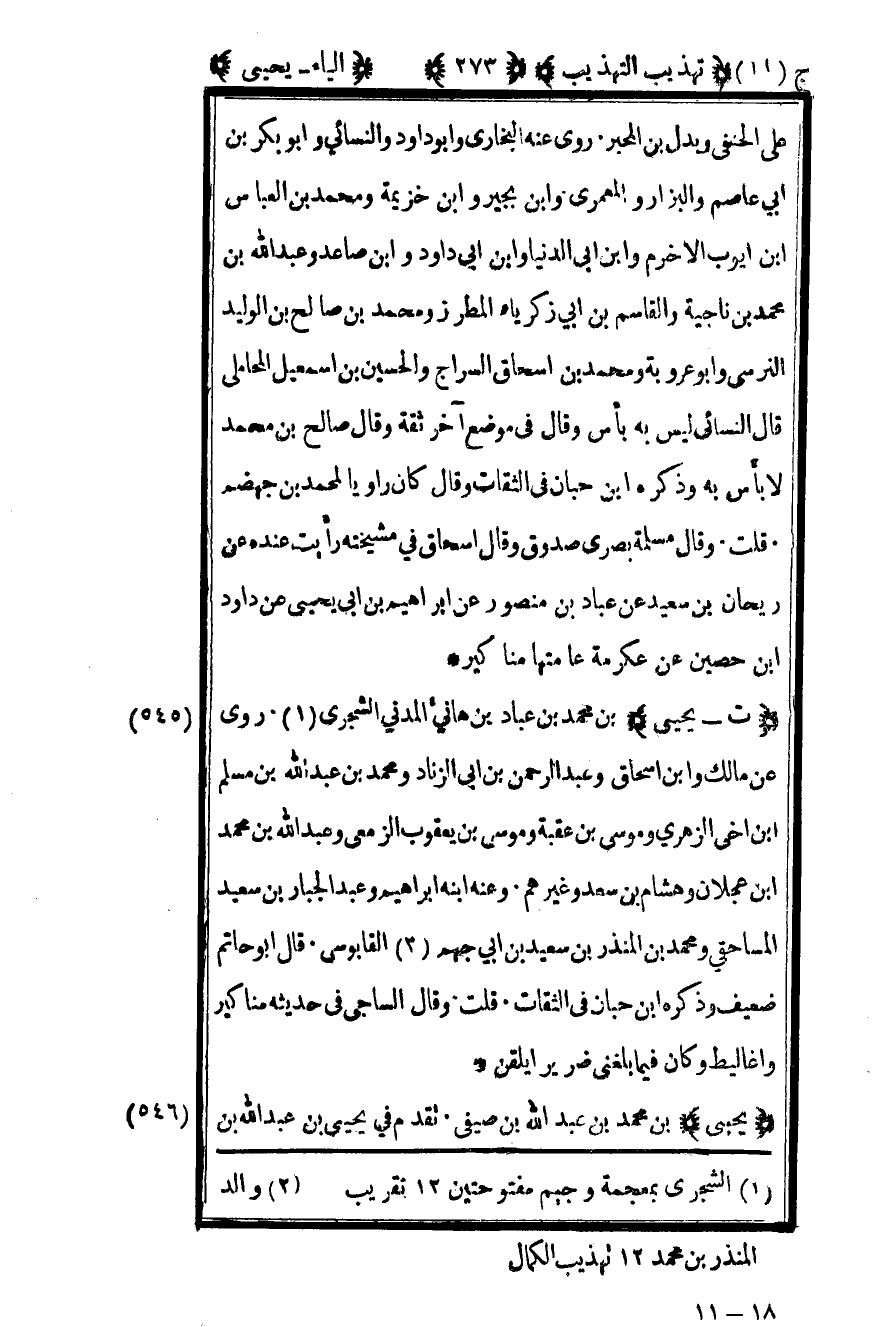 ج (١١) ﴿ تهذيب التهذيب ﴾ ﴿ ٢٧٣ ﴾ ﴿ الياء ـ يحيى ﴾
على الحنفى وبدل بن المحبر· روى عنه البخارى وابوداود والنسائي و ابو بكر بن
ابي عاصم والبزار و المعمرى وابن بجير و ابن خزيمة ومحمد بن العباس
ابن ايوب الاخرم وابن ابى الدنيا وابن ابي داود و ابن صاعد وعبدالله بن
محمد بن ناجية والقاسم بن ابي زكرياء المطرز ومحمد بن صالح بن الوليد
النرسى وابوعروبة ومحمد بن اسحاق السراج والحسين بن اسمعيل المحاملى
قال النسائى ليس به بأس وقال فى موضع آخر ثقة وقال صالح بن محمد
لا بأس به وذكره ابن حبان فى الثقات وقال كان راويا لمحمد بن جهضم
· قلت· وقال مسلمة بصرى صدوق وقال اسحاق في مشيخته رأيت عنده عن
ريحان بن سعيد عن عباد بن منصور عن ابراهيم بن ابى يحيى عن داود
ابن حصين عن عكرمة عامتها مناكير*
﴿ ت ـ يحيى ﴾ بن محمد بن عباد بن هانئ المدني الشجرى (١)· روى (٥٤٥)
عن مالك وابن اسحاق وعبدالرحمن بن ابى الزناد ومحمد بن عبدالله بن مسلم
ابن اخى الزهري وموسى بن عقبة وموسى بن يعقوب الزمعى وعبدالله بن محمد
ابن عجلان وهشام بن سعد وغيرهم· وعنه ابنه ابراهيم وعبدالجبار بن سعيد
المساحقي ومحمد بن المنذر بن سعيد بن ابي جهم (٢) القابوسى· قال ابوحاتم
ضعيف وذكره ابن حبان فى الثقات· قلت· وقال الساجى فى حديثه مناكير
واغاليط وكان فيما بلغنى ضريرا يلقن *
﴿ يحيى ﴾ بن محمد بن عبد الله بن صيفى· تقدم في يحيى بن عبدالله بن (٥٤٦)
(١) الشجرى بمعجمة وجيم مفتوحتين ١٢ تقريب (٢) والد
المنذر بن محمد ١٢ تهذيب الكمال
١١ – ١٨